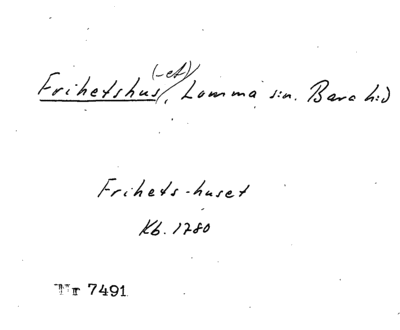 (-et)
Frihetshus, Lomma sn. Bara hd
Frihets-huset
Kb. 1780
Nr 7491